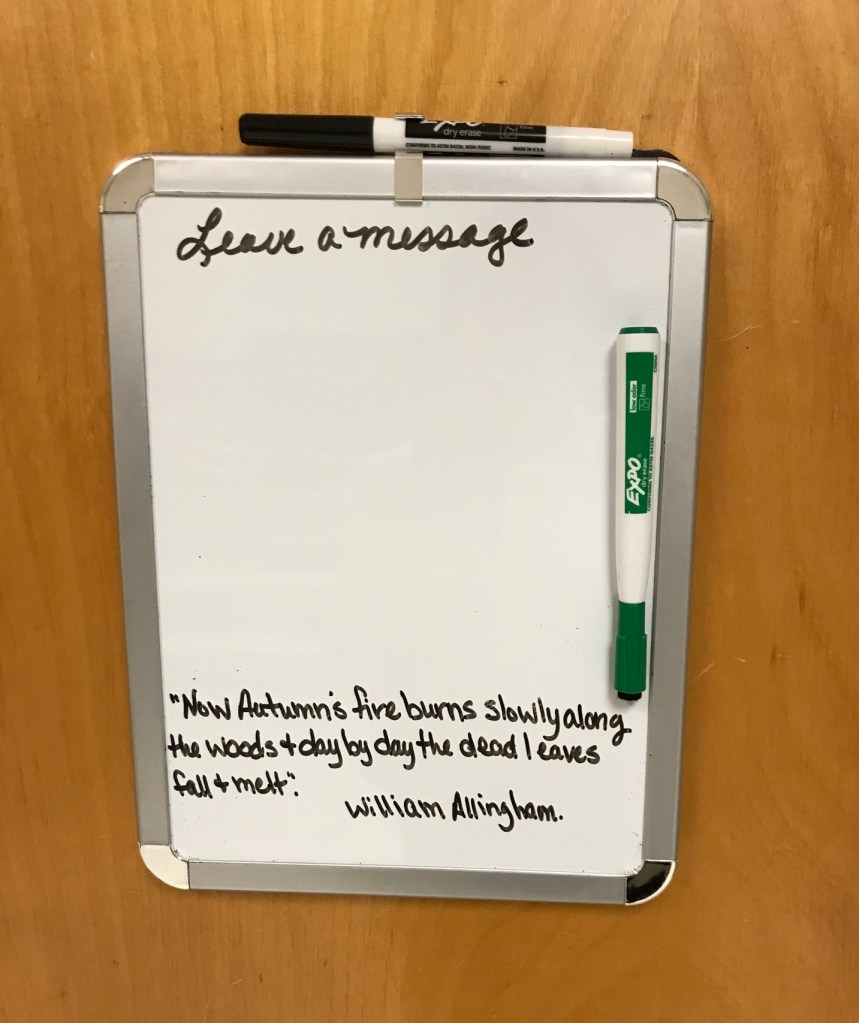 EXPO
dry erase
fine
CONFORMS TO ASTM D4236, NON-TOXIC MADE IN U.S.A.
Leave a message
low odor
fine
EXPO
dry erase
"Now Autumn's fire burns slowly along
the woods + day by day the dead leaves
fall + melt".
William Allingham.